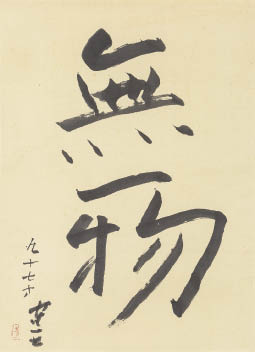 無物
九十七才